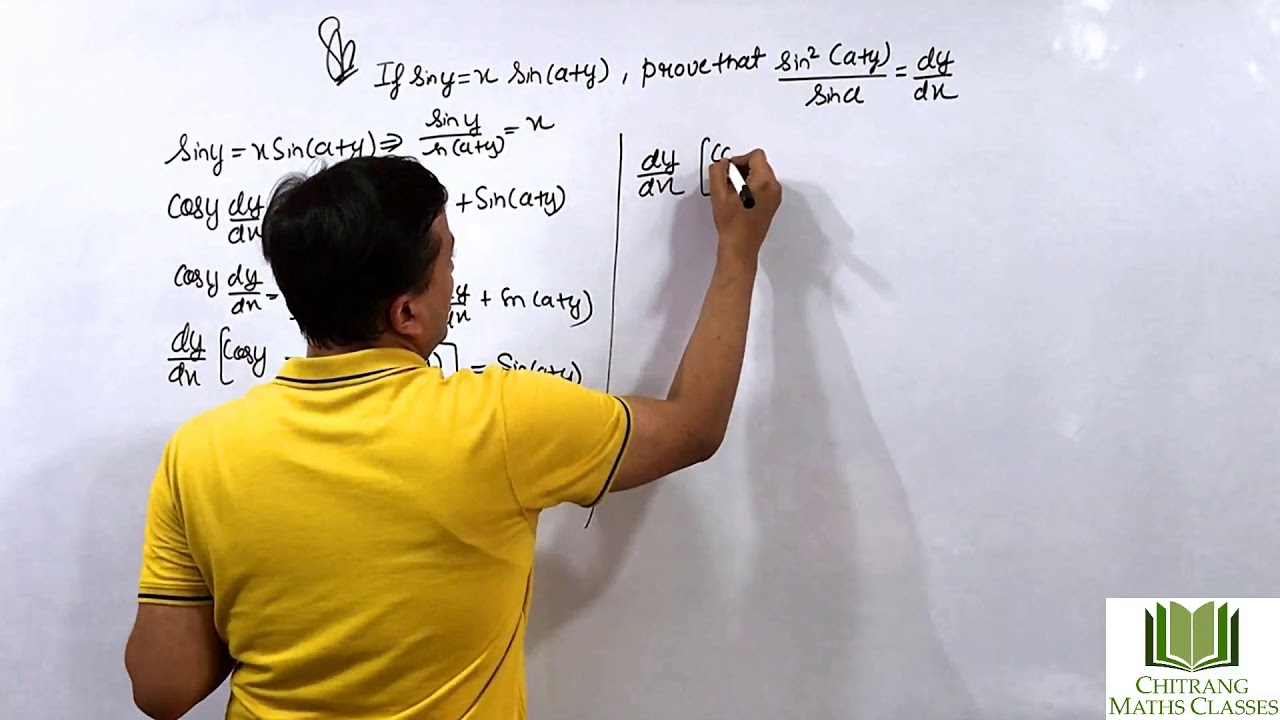 If siny = x Sin(a+y), prove that sin² (a+y)/sina = dy/dx
siny = x Sin(a+y) ⇒ siny/n(a+y) = x
cosy dy/dx + Sin(a+y)
cosy dy/dx = + Sin(a+y)
dy/dx [cosy - ] = Sin(a+y)
dy/dx [co
CHITRANG
MATHS CLASSES